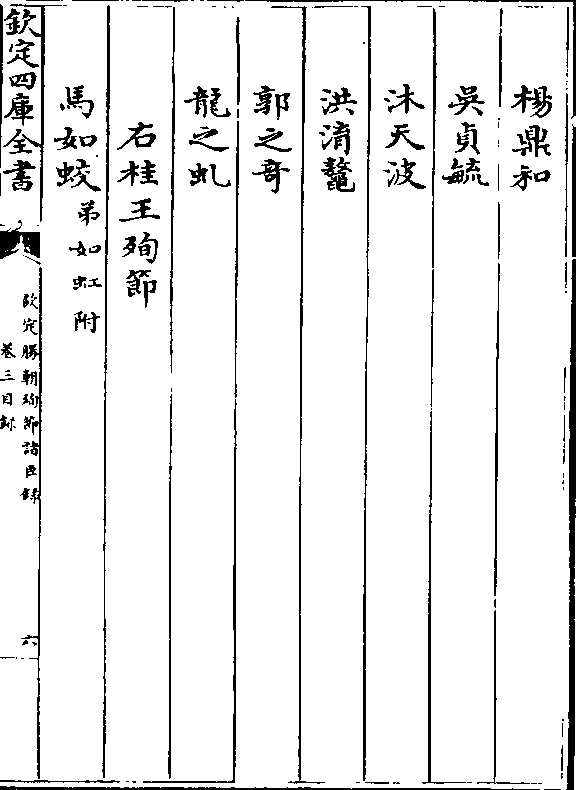 楊鼎和
吳貞毓
沐天波
洪淯鼇
郭之奇
龍之虬
右桂王殉節
馬如蛟弟如虹附
欽定四庫全書
欽定勝朝殉節諸臣錄
卷三目錄
六